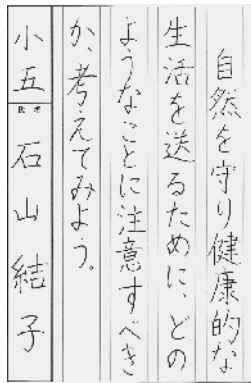 自然を守り健康的な
生活を送るために、どの
ようなことに注意すべき
か、考えてみよう。
小五 氏名 石山結子